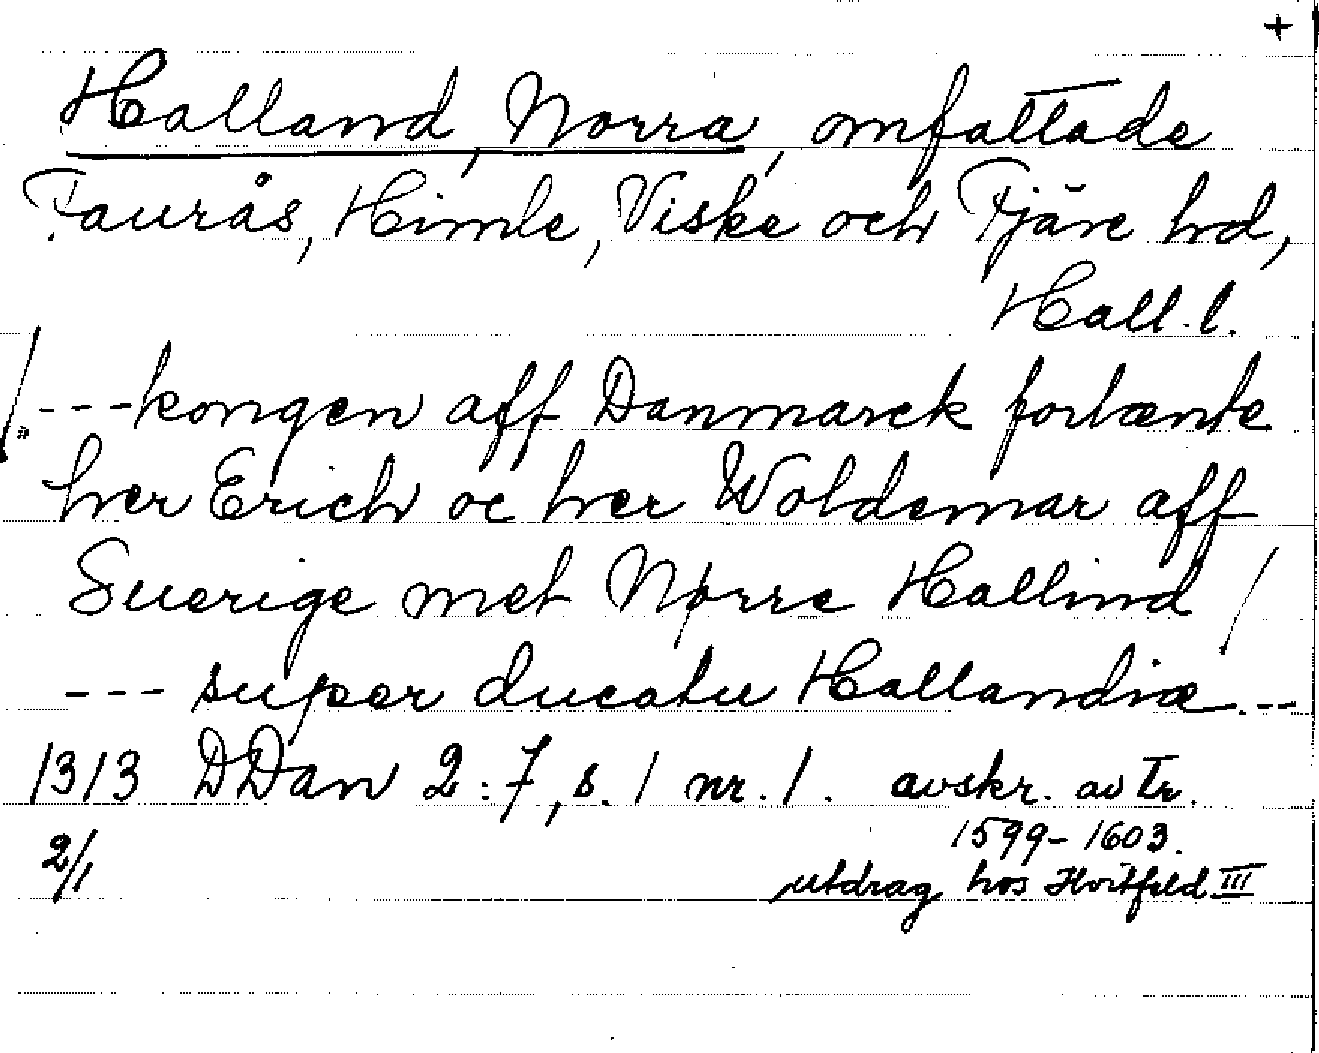 +
Halland, Norra, omfattade
Faurås, Himle, Viske och Fjäre hd,
Hall. l.
/. ---kongen aff Danmarck forlænte
her Erich oc her Woldemar aff
Suerige met Nørre Hallind /
--- super ducatu Hallandiæ---
1313 DDan 2:7, s. 1 nr. 1. avskr. av tr.
2/1 1599-1603.
utdrag hos Hvitfeld III